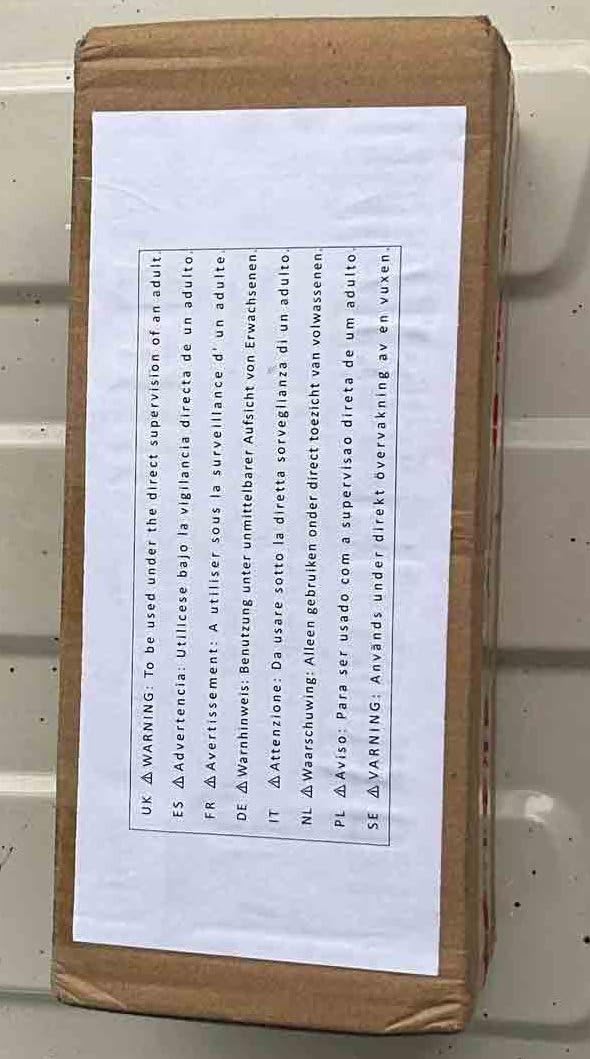 UK ⚠WARNING: To be used under the direct supervision of an adult.
ES ⚠Advertencia: Utilícese bajo la vigilancia directa de un adulto.
FR ⚠Avertissement: A utiliser sous la surveillance d' un adulte.
DE ⚠Warnhinweis: Benutzung unter unmittelbarer Aufsicht von Erwachsenen.
IT ⚠Attenzione: Da usare sotto la diretta sorveglianza di un adulto.
NL ⚠Waarschuwing: Alleen gebruiken onder direct toezicht van volwassenen.
PL ⚠Aviso: Para ser usado com a supervisao direta de um adulto.
SE ⚠VARNING: Används under direkt övervakning av en vuxen.